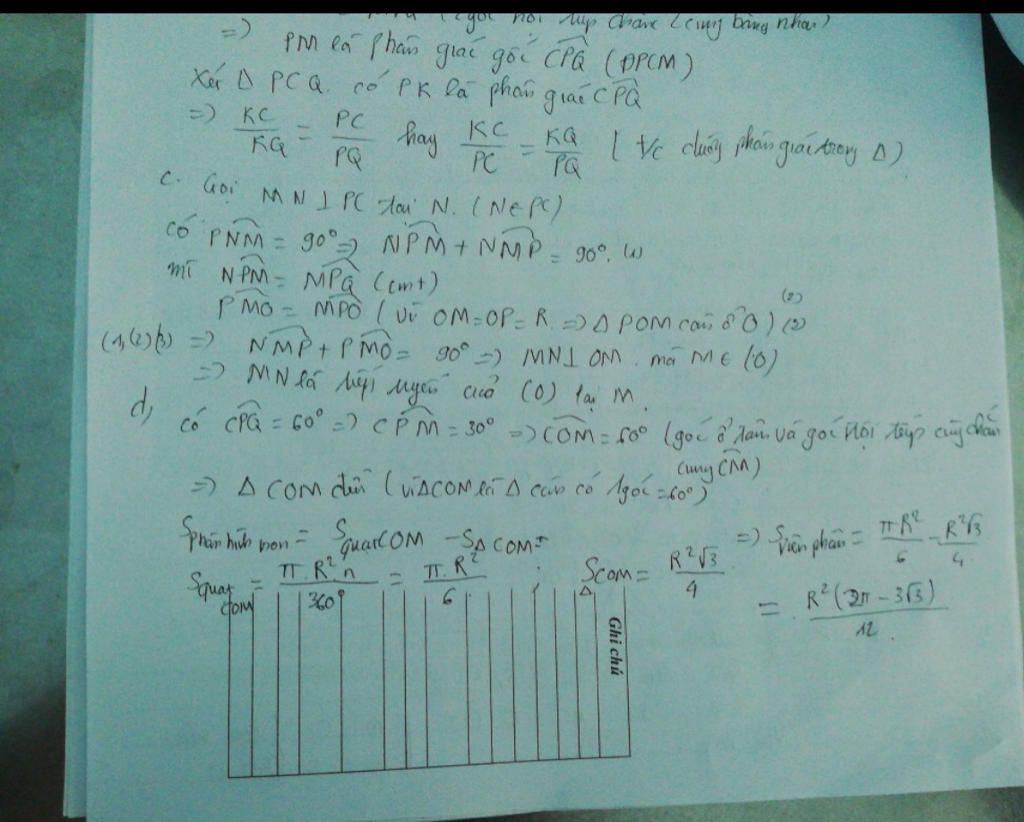 (góc nội tiếp chắn 2 cung bằng nhau)
=> PM là phân giác góc CPQ (ĐPCM)
Xét Δ PCQ có PK là phân giác CPQ
=> KC/KQ = PC/PQ hay KC/PC = KQ/PQ ( t/c đường phân giác trong Δ )
c. Gọi MN ⊥ PC tại N. (N ∈ PC)
có PNM = 90° => NPM + NMP = 90°. (1)
mà NPM = MPQ (cmt) (2)
PMO = MPO ( vì OM = OP = R => Δ POM cân ở O ) (3)
(1,(2)(3) => NMP + PMO = 90° => MN ⊥ OM. mà M ∈ (O)
=> MN là tiếp tuyến của (O) tại M.
d, có CPQ = 60° => CPM = 30° => COM = 60° (góc ở tâm và góc nội tiếp cùng chắn
cung CM)
=> Δ COM đều ( vì Δ COM là Δ cân có 1 góc = 60°)
S phần hình tròn = S quạt COM - S Δ COM
S quạt COM = π.R².n/360° = π.R²/6 ; S Δ COM = R²√3/4
=> S viên phân = π.R²/6 - R²√3/4
= R²(2π - 3√3)/12.
Ghi chú